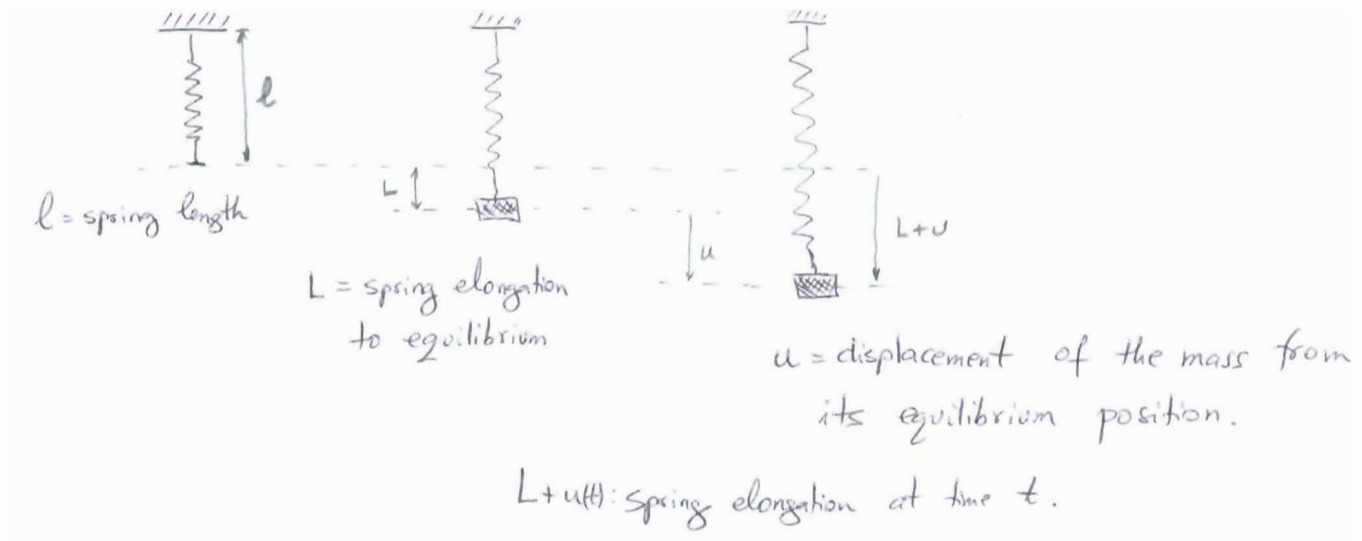 l
l = spring length
L
L = spring elongation
to equilibrium
u
L+u
u = displacement of the mass from
its equilibrium position.
L+u(t): Spring elongation at time t.